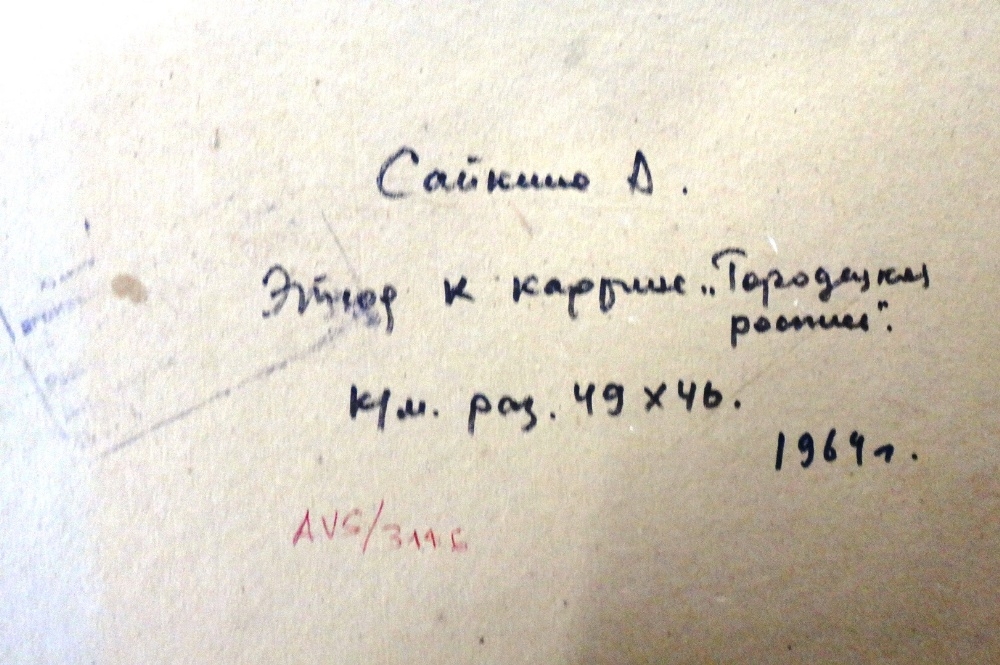 Сайкина А.
Этюд к картине „Городецкая
роспись".
к/м. раз. 49 х 46.
1964 г.